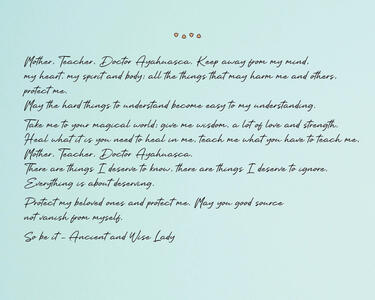 Mother, Teacher, Doctor Ayahuasca. Keep away from my mind,
my heart, my spirit and body; all the things that may harm me and others,
protect me.
May the hard things to understand become easy to my understanding.
Take me to your magical world; give me wisdom, a lot of love and strength.
Heal what it is you need to heal in me, teach me what you have to teach me.
Mother, Teacher, Doctor Ayahuasca.
There are things I deserve to know, there are things I deserve to ignore.
Everything is about deserving.
Protect my beloved ones and protect me. May you good source
not vanish from myself.
So be it - Ancient and Wise Lady